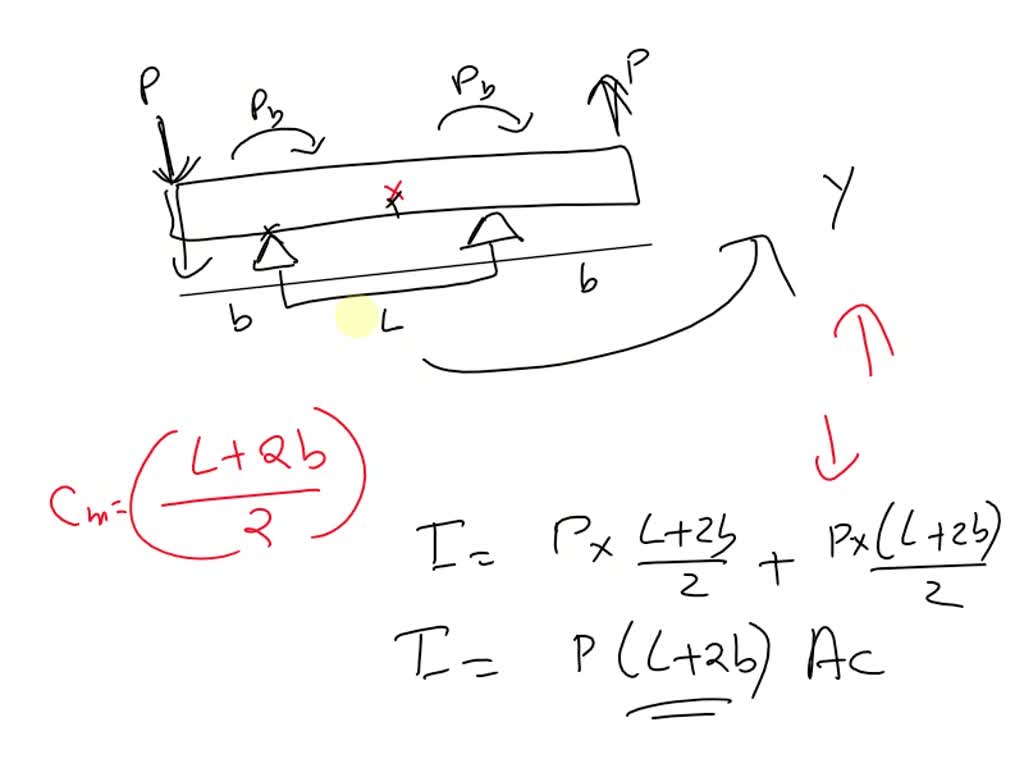 P P_b P_b P
Y
b L b
C_m = ((L+2b)/2)
I = P x (L+2b)/2 + P x (L+2b)/2
I = P (L+2b) Ac